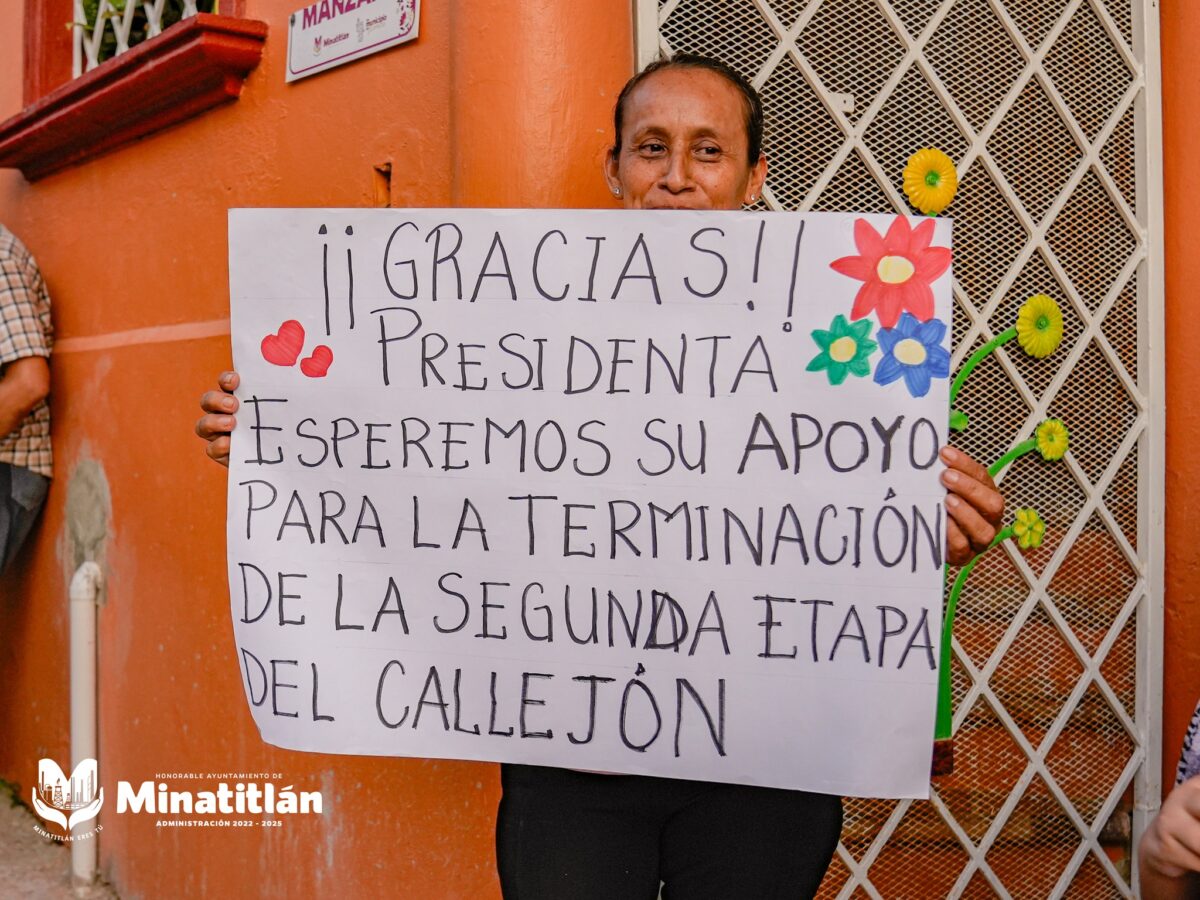 MANZANA
Minatitlán
¡¡GRACIAS!!
PRESIDENTA
ESPEREMOS SU APOYO
PARA LA TERMINACIÓN
DE LA SEGUNDA ETAPA
DEL CALLEJÓN
HONORABLE AYUNTAMIENTO DE
Minatitlán
ADMINISTRACIÓN 2022 - 2025
MINATITLÁN ERES TÚ